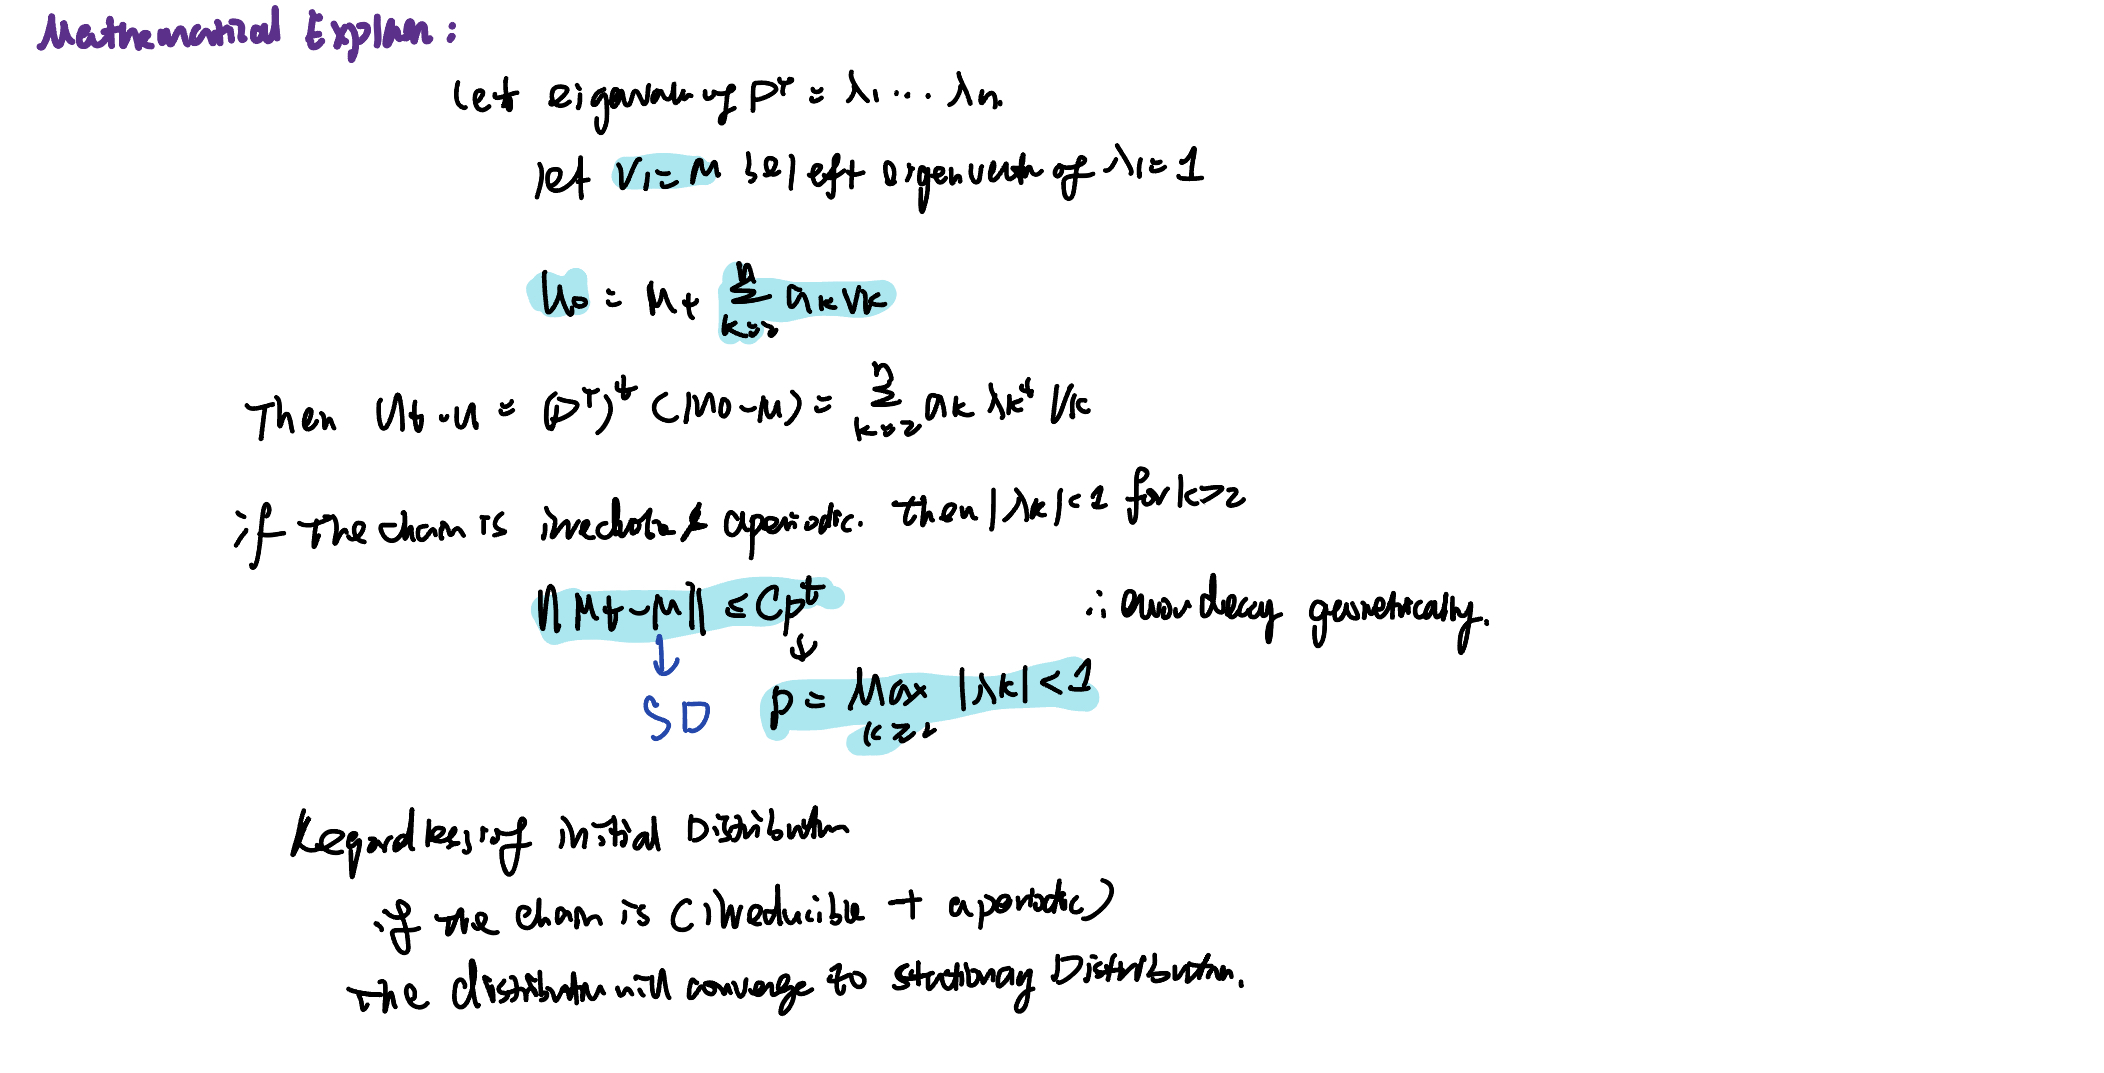 Mathematical Explan:
let eigenvalue of Pᵀ = λ₁ ... λn.
let V₁ = μ be left eigenvector of λ₁ = 1
μ₀ = μ + Σ_{k=2}^{n} aₖVₖ
Then μt - μ = (Pᵀ)ᵗ (μ₀ - μ) = Σ_{k=2}^{n} aₖ λₖᵗ Vₖ
if the chain is irreducible & aperiodic. then |λₖ| < 1 for k ≥ 2
‖μt - μ‖ ≤ Cρᵗ ∴ error decay geometrically.
↓ ↓
SD ρ = Max_{k≥2} |λₖ| < 1
Regardless of initial Distribution
if the chain is (irreducible + aperiodic)
the distribution will converge to stationary Distribution.